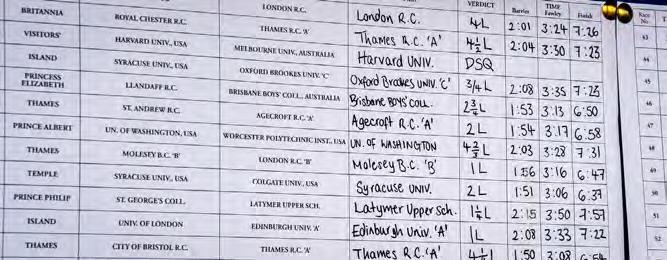 VERDICT TIME Race
Barrier Fawley Finish No.
BRITANNIA ROYAL CHESTER R.C. LONDON R.C. London R.C. 4L 2:01 3:24 7:26
VISITORS' HARVARD UNIV., USA THAMES R.C. 'A' Thames R.C. 'A' 4½L 2:04 3:30 7:23 43
ISLAND SYRACUSE UNIV., USA MELBOURNE UNIV., AUSTRALIA Harvard UNIV. DSQ 44
PRINCESS ELIZABETH LLANDAFF R.C. OXFORD BROOKES UNIV. 'C' Oxford Brookes UNIV. 'C' ¾L 2:08 3:35 7:25 45
THAMES ST. ANDREW B.C. BRISBANE BOYS' COLL., AUSTRALIA Brisbane Boys' COLL. 2¾L 1:53 3:13 6:50 46
PRINCE ALBERT UN. OF WASHINGTON, USA AGECROFT R.C. 'A' Agecroft R.C. 'A' 2L 1:54 3:17 6:58 47
THAMES MOLESEY B.C. 'B' WORCESTER POLYTECHNIC INST., USA UN. OF WASHINGTON L 2:03 3:28 7:31 48
TEMPLE SYRACUSE UNIV., USA LONDON R.C. 'B' Molesey B.C. 'B' 1L 1:56 3:16 6:47 49
PRINCE PHILIP ST. GEORGE'S COLL. COLGATE UNIV., USA Syracuse UNIV. 2L 1:51 3:06 6:37 50
ISLAND UNIV. OF LONDON LATYMER UPPER SCH. Latymer Upper Sch. 1¼L 2:15 3:50 7:57 51
THAMES CITY OF BRISTOL R.C. EDINBURGH UNIV. 'A' Edinburgh Univ. 'A' 1L 2:08 3:33 7:22 52
THAMES R.C. 'A' Thames R.C. 'A' L 1:50 3:08